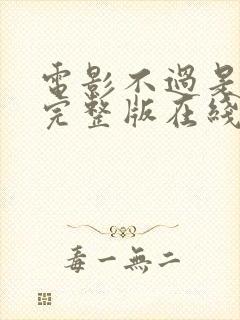 電影不過是
完整版在綫
毒一無二